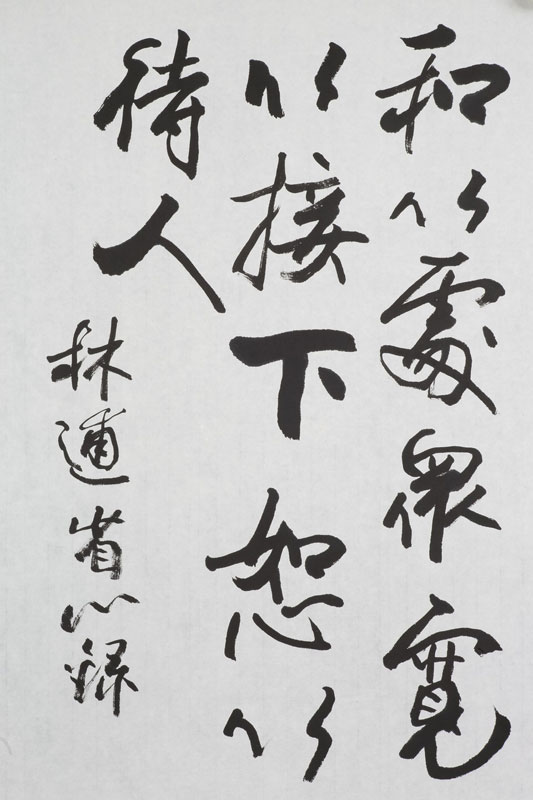 和以處衆寬
以接下恕以
待人
林逋省心録